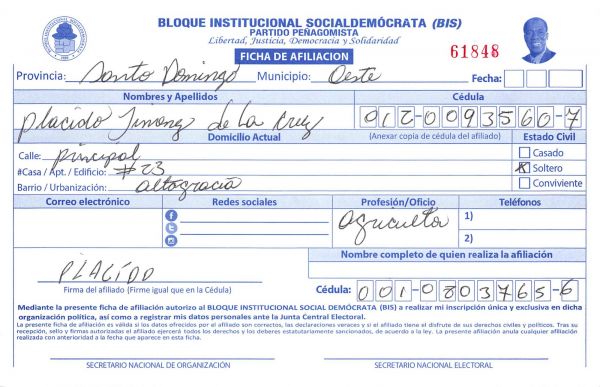 BLOQUE INSTITUCIONAL SOCIALDEMÓCRATA (BIS)
PARTIDO PEÑAGOMISTA
Libertad, Justicia, Democracia y Solidaridad
FICHA DE AFILIACION
61848
Provincia: Santo Domingo Municipio: Oeste Fecha:
Nombres y Apellidos Cédula
Placido Jimenez de La Cruz 012-0093560-7
Domicilio Actual (Anexar copia de cédula del afiliado) Estado Civil
Calle: principal Casado
#Casa / Apt. / Edificio: #23 X Soltero
Barrio / Urbanización: altagracia Conviviente
Correo electrónico Redes sociales Profesión/Oficio Teléfonos
Agricultor 1)
2)
Nombre completo de quien realiza la afiliación
PLACIDO
Firma del afiliado (Firme igual que en la Cédula) Cédula: 001-0803765-6
Mediante la presente ficha de afiliación autorizo al BLOQUE INSTITUCIONAL SOCIAL DEMÓCRATA (BIS) a realizar mi inscripción única y exclusiva en dicha
organización política, así como a registrar mis datos personales ante la Junta Central Electoral.
La presente ficha de afiliación es válida si los datos ofrecidos por el afiliado son correctos, las declaraciones veraces y si el afiliado tiene el disfrute de sus derechos civiles y políticos. Tras su
recepción, sello y firmas autorizadas el afiliado ejercerá todos los derechos y los deberes estatutariamente sancionados, de acuerdo a la ley. La presente afiliación anula cualquier afiliación
realizada con anterioridad a la fecha que aparece en esta ficha.
SECRETARIO NACIONAL DE ORGANIZACIÓN SECRETARIO NACIONAL ELECTORAL